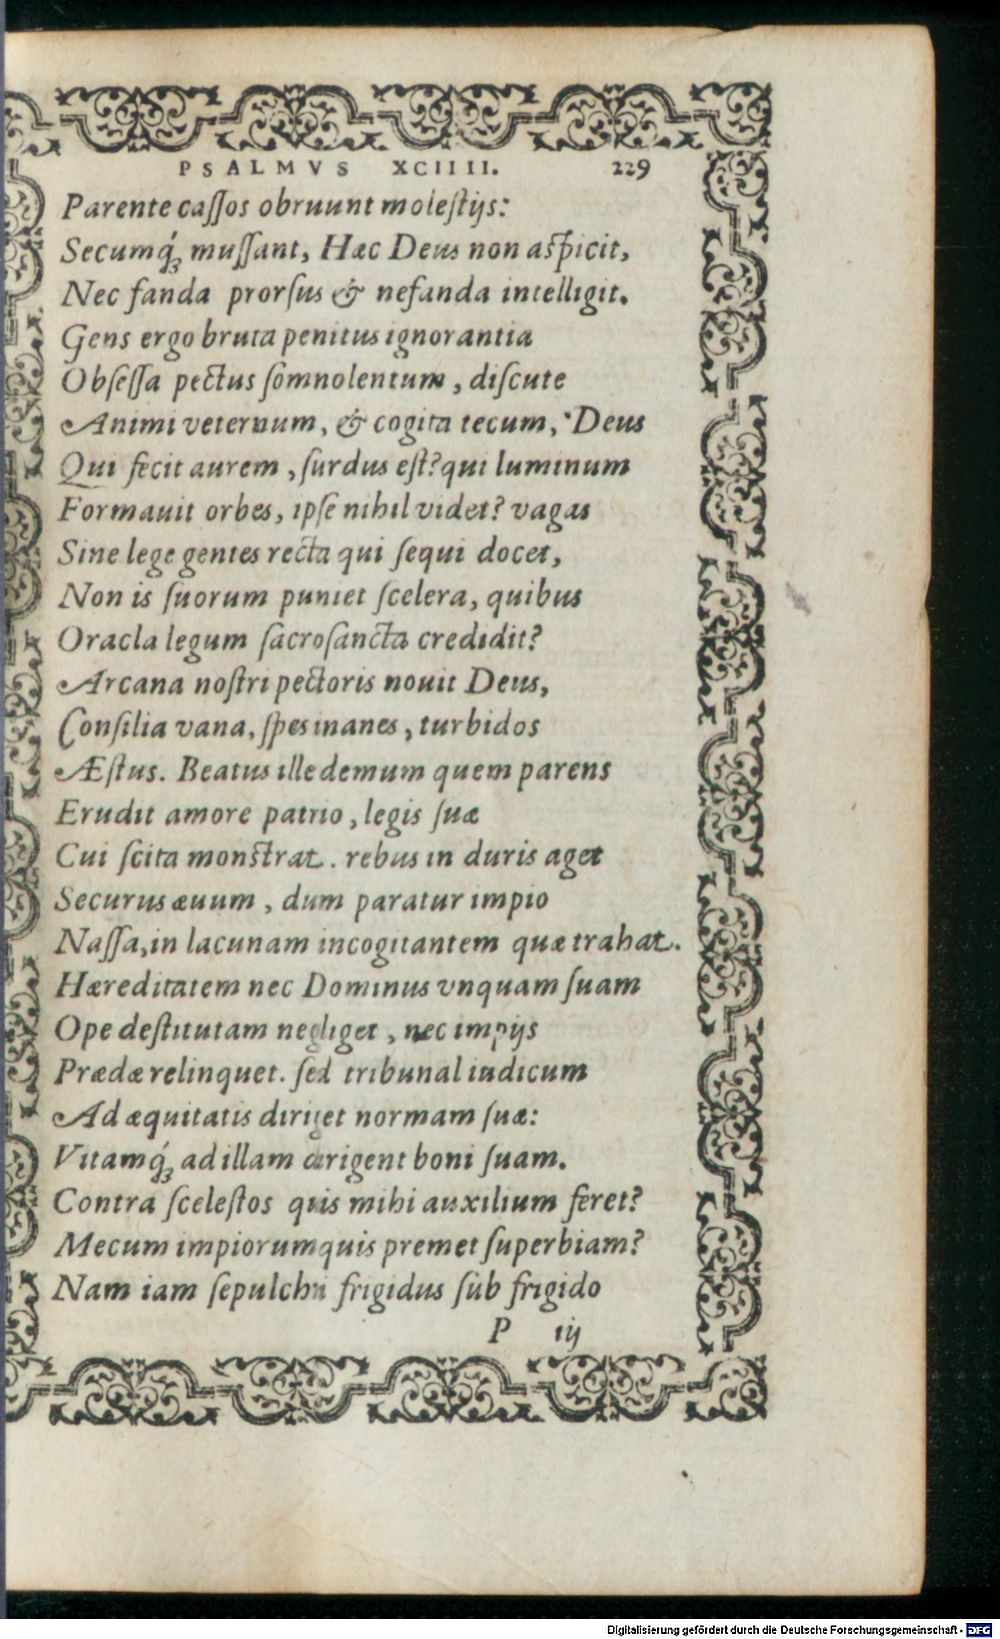 PSALMVS XCIIII. 229
Parente caſſos obruunt moleſtijs:
Secumq́ꝫ muſſant, Hæc Deus non aſpicit,
Nec fanda prorſus & nefanda intelligit.
Gens ergo bruta penitus ignorantia
Obſeſſa pectus ſomnolentum, diſcute
Animi veternum, & cogita tecum, Deus
Qui fecit aurem, ſurdus eſt? qui luminum
Formauit orbes, ipſe nihil videt? vagas
Sine lege gentes recta qui ſequi docet,
Non is ſuorum puniet ſcelera, quibus
Oracla legum ſacroſancta credidit?
Arcana noſtri pectoris nouit Deus,
Conſilia vana, ſpes inanes, turbidos
Æſtus. Beatus ille demum quem parens
Erudit amore patrio, legis ſuæ
Cui ſcita monſtrat. rebus in duris aget
Securus æuum, dum paratur impio
Naſſa, in lacunam incogitantem quæ trahat.
Hæreditatem nec Dominus vnquam ſuam
Ope deſtitutam negliget, nec impijs
Prædæ relinquet. ſed tribunal iudicum
Ad æquitatis diriget normam ſuæ:
Vitamq́ꝫ ad illam dirigent boni ſuam.
Contra ſceleſtos quis mihi auxilium feret?
Mecum impiorum quis premet ſuperbiam?
Nam iam ſepulchri frigidus ſub frigido
P iij
Digitalisierung gefördert durch die Deutsche Forschungsgemeinschaft - DFG